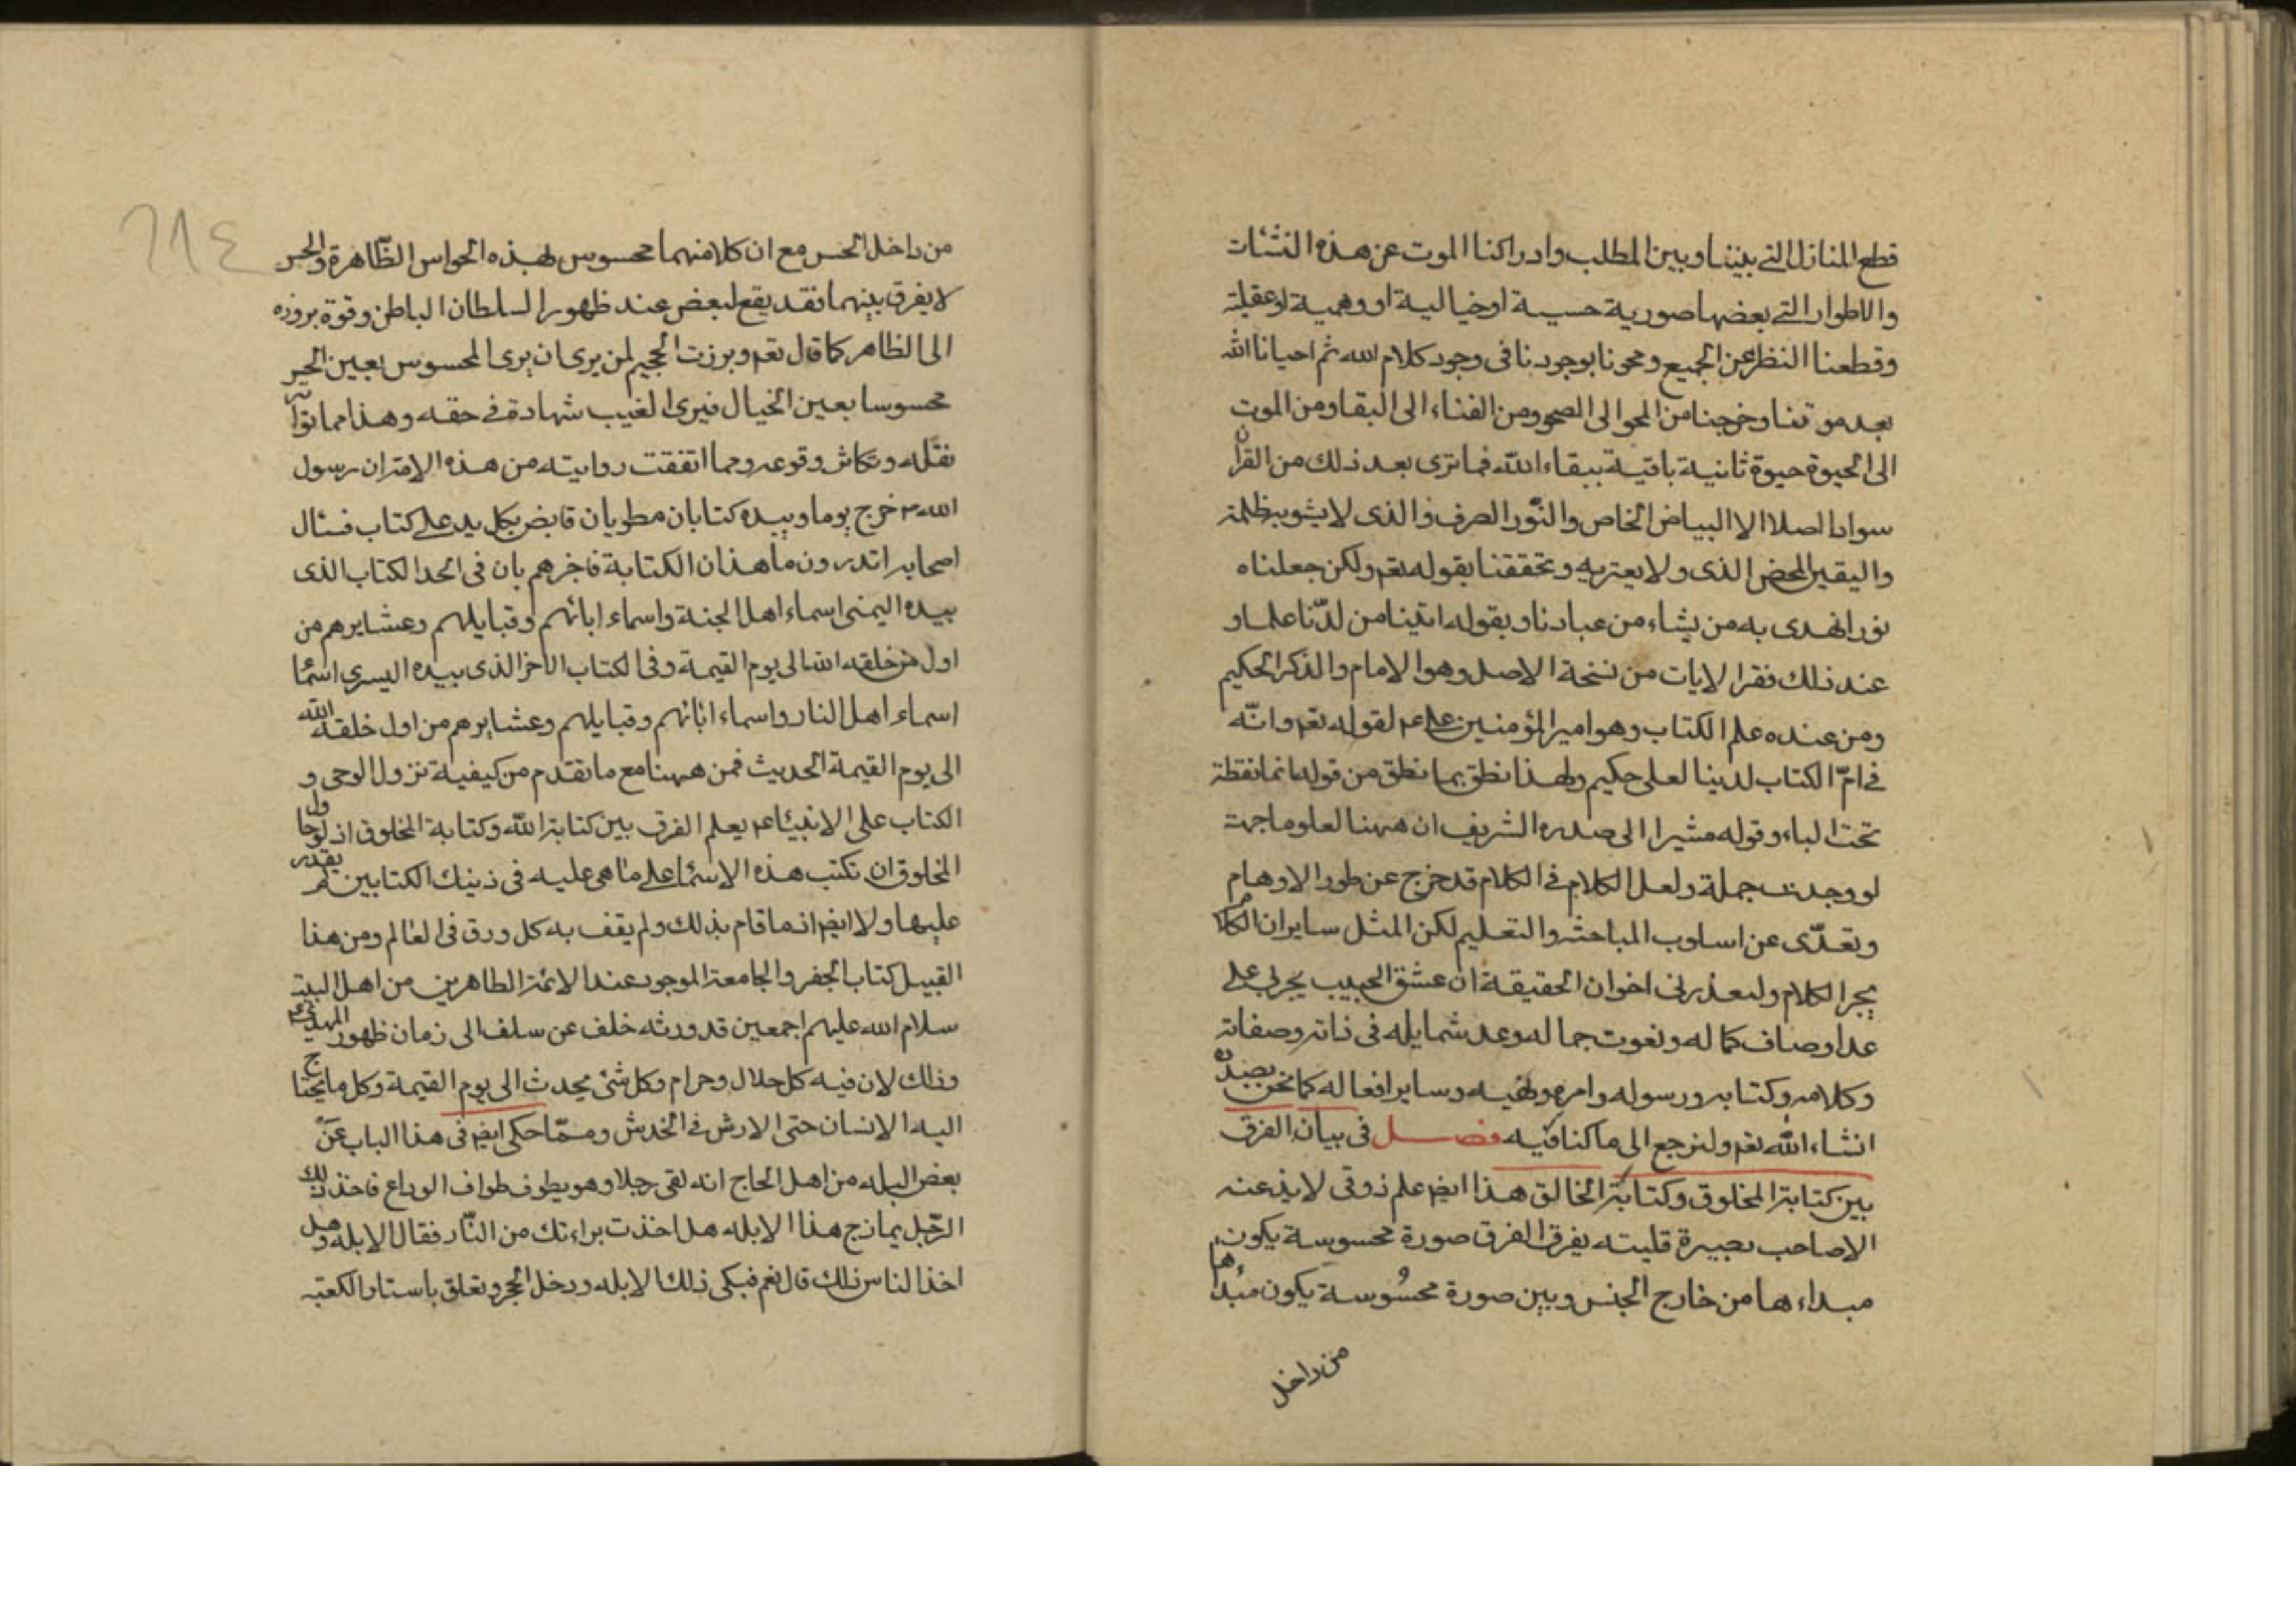 قطع المنازل التى بيننا وبين المطلب وادراكنا الموت عن هذه النشئات
والاطوار التى بعضها صورية حسية او خيالية او وهمية او عقلية
وقطعنا النظر عن الجميع ومحونا بوجودنا فى وجود كلام الله ثم احيانا الله
بعد موتنا وخرجنا من المحو الى الصحو ومن الفناء الى البقا ومن الموت
الى الحيوة حيوة ثانية باقية ببقاء الله فما نرى بعد ذلك من القرآن
سوادا اصلا الا البياض الخاص والنور الصرف والذى لا يشوبه ظلمة
واليقين المحض الذى ولا يعتريه وتحققنا بقوله تعم ولكن جعلناه
نورا نهدى به من يشاء من عبادنا وبقوله اتينا من لدنا علما و
عند ذلك نقرا الايات من نسخة الاصل وهو الامام والذكر الحكيم
ومن عنده علم الكتاب وهو امير المؤمنين على عم لقوله تعم وانه
فى ام الكتاب لدينا لعلى حكيم ولهذا نطق بما نطق من قوله انما نقطة
تحت الباء وقوله مشيرا الى صدره الشريف ان ههنا لعلوما جمة
لو وجدت جملة ولعل الكلام فى الكلام قد خرج عن طور الاوهام
وتعدى عن اسلوب المباحثه والتعليم لكن المثل ساير ان الكلام
يجر الكلام وليعذرنى اخوان الحقيقة ان عشق الحبيب يجرنى على
عد اوصاف كماله ونعوت جماله وعد شمايله فى ذاته وصفاته
وكلامه وكتابه ورسوله وامره ونهيه وساير افعاله كما نحن بصدده
انشاء الله تعم ولنرجع الى ما كنا فيه فصل فى بيان الفرق
بين كتابة المخلوق وكتابة الخالق هذا ايضم علم ذوقى لا يذعنه
الا صاحب بصيرة قلبيته يفرق الفرق صورة محسوسة يكون
مبداءها من خارج الجنس وبين صورة محسوسة يكون مبداها
من داخل
من داخل الحس مع ان كلا منهما محسوس بهذه الحواس الظاهرة والحس
لا يفرق بينهما فقد يقع لبعض عند ظهور السلطان الباطن وقوة بروزه
الى الظاهر كما قال تعم وبرزت الجحيم لمن يرى ان يرى المحسوس بعين الخير
محسوسا بعين الخيال فيرى الغيب شهادة فى حقه وهذا مما تواتر
نقله وتكاثر وقوعه ومما اتفقت روايته من هذه الامة ان رسول
الله ص خرج يوما وبيده كتابان مطويان قابض بكل يد على كتاب فسئال
اصحابه اتدرون ما هذان الكتابة فاخبرهم بان فى احد الكتاب الذى
بيده اليمنى اسماء اهل الجنة واسماء ابائهم وقبايلهم وعشايرهم من
اول من خلقه الله الى يوم القيمة وفى الكتاب الاخر الذى بيده اليسرى اسما
اسماء اهل النار واسماء ابائهم وقبايلهم وعشايرهم من اول خلقه الله
الى يوم القيمة الحديث فمن ههنا مع ما تقدم من كيفية نزول الوحى و
الكتاب على الانبياء عم يعلم الفرق بين كتابة الله وكتابة المخلوق اذ لو حاول
المخلوق ان تكتب هذه الاسما على ما هى عليه فى ذينك الكتابين لم يقدر
عليها ولا ايضم انما قام بذلك ولم يقف به كل ورق فى العالم ومن هذا
القبيل كتاب الجفر والجامعة الموجود عند الائمة الطاهرين من اهل البيت
سلام الله عليهم اجمعين قد ورثه خلف عن سلف الى زمان ظهور المهدى عم
وذلك لان فيه كل حلال وحرام وكل شئ يحدث الى يوم القيمة وكل ما يحتاج
اليه الانسان حتى الارش فى الخدش ومما حكى ايضم فى هذا الباب عن
بعض البله من اهل الحاج انه لقى رجلا وهو يطوف طواف الوداع فاخذ ذلك
الرجل يمازح هذا الابله هل اخذت براءتك من النار فقال الابله وهل
اخذ الناس ذلك قال نعم فبكى ذلك الابله ودخل الحجر وتعلق باستار الكعبة